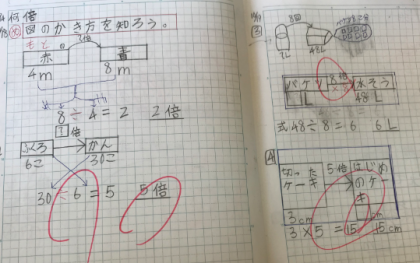 何倍
図のかき方を知ろう。
もと
赤
青
4m
8m
8÷4=2 2倍
ふくろ
かん
6こ
30こ
30÷6=5 5倍
8倍
48L
バケツ
8倍
水そう
48L
式48÷8=6 6L
切った
ケーキ
5倍
はじめ
のケー
キ
3cm
3×5=15 15cm